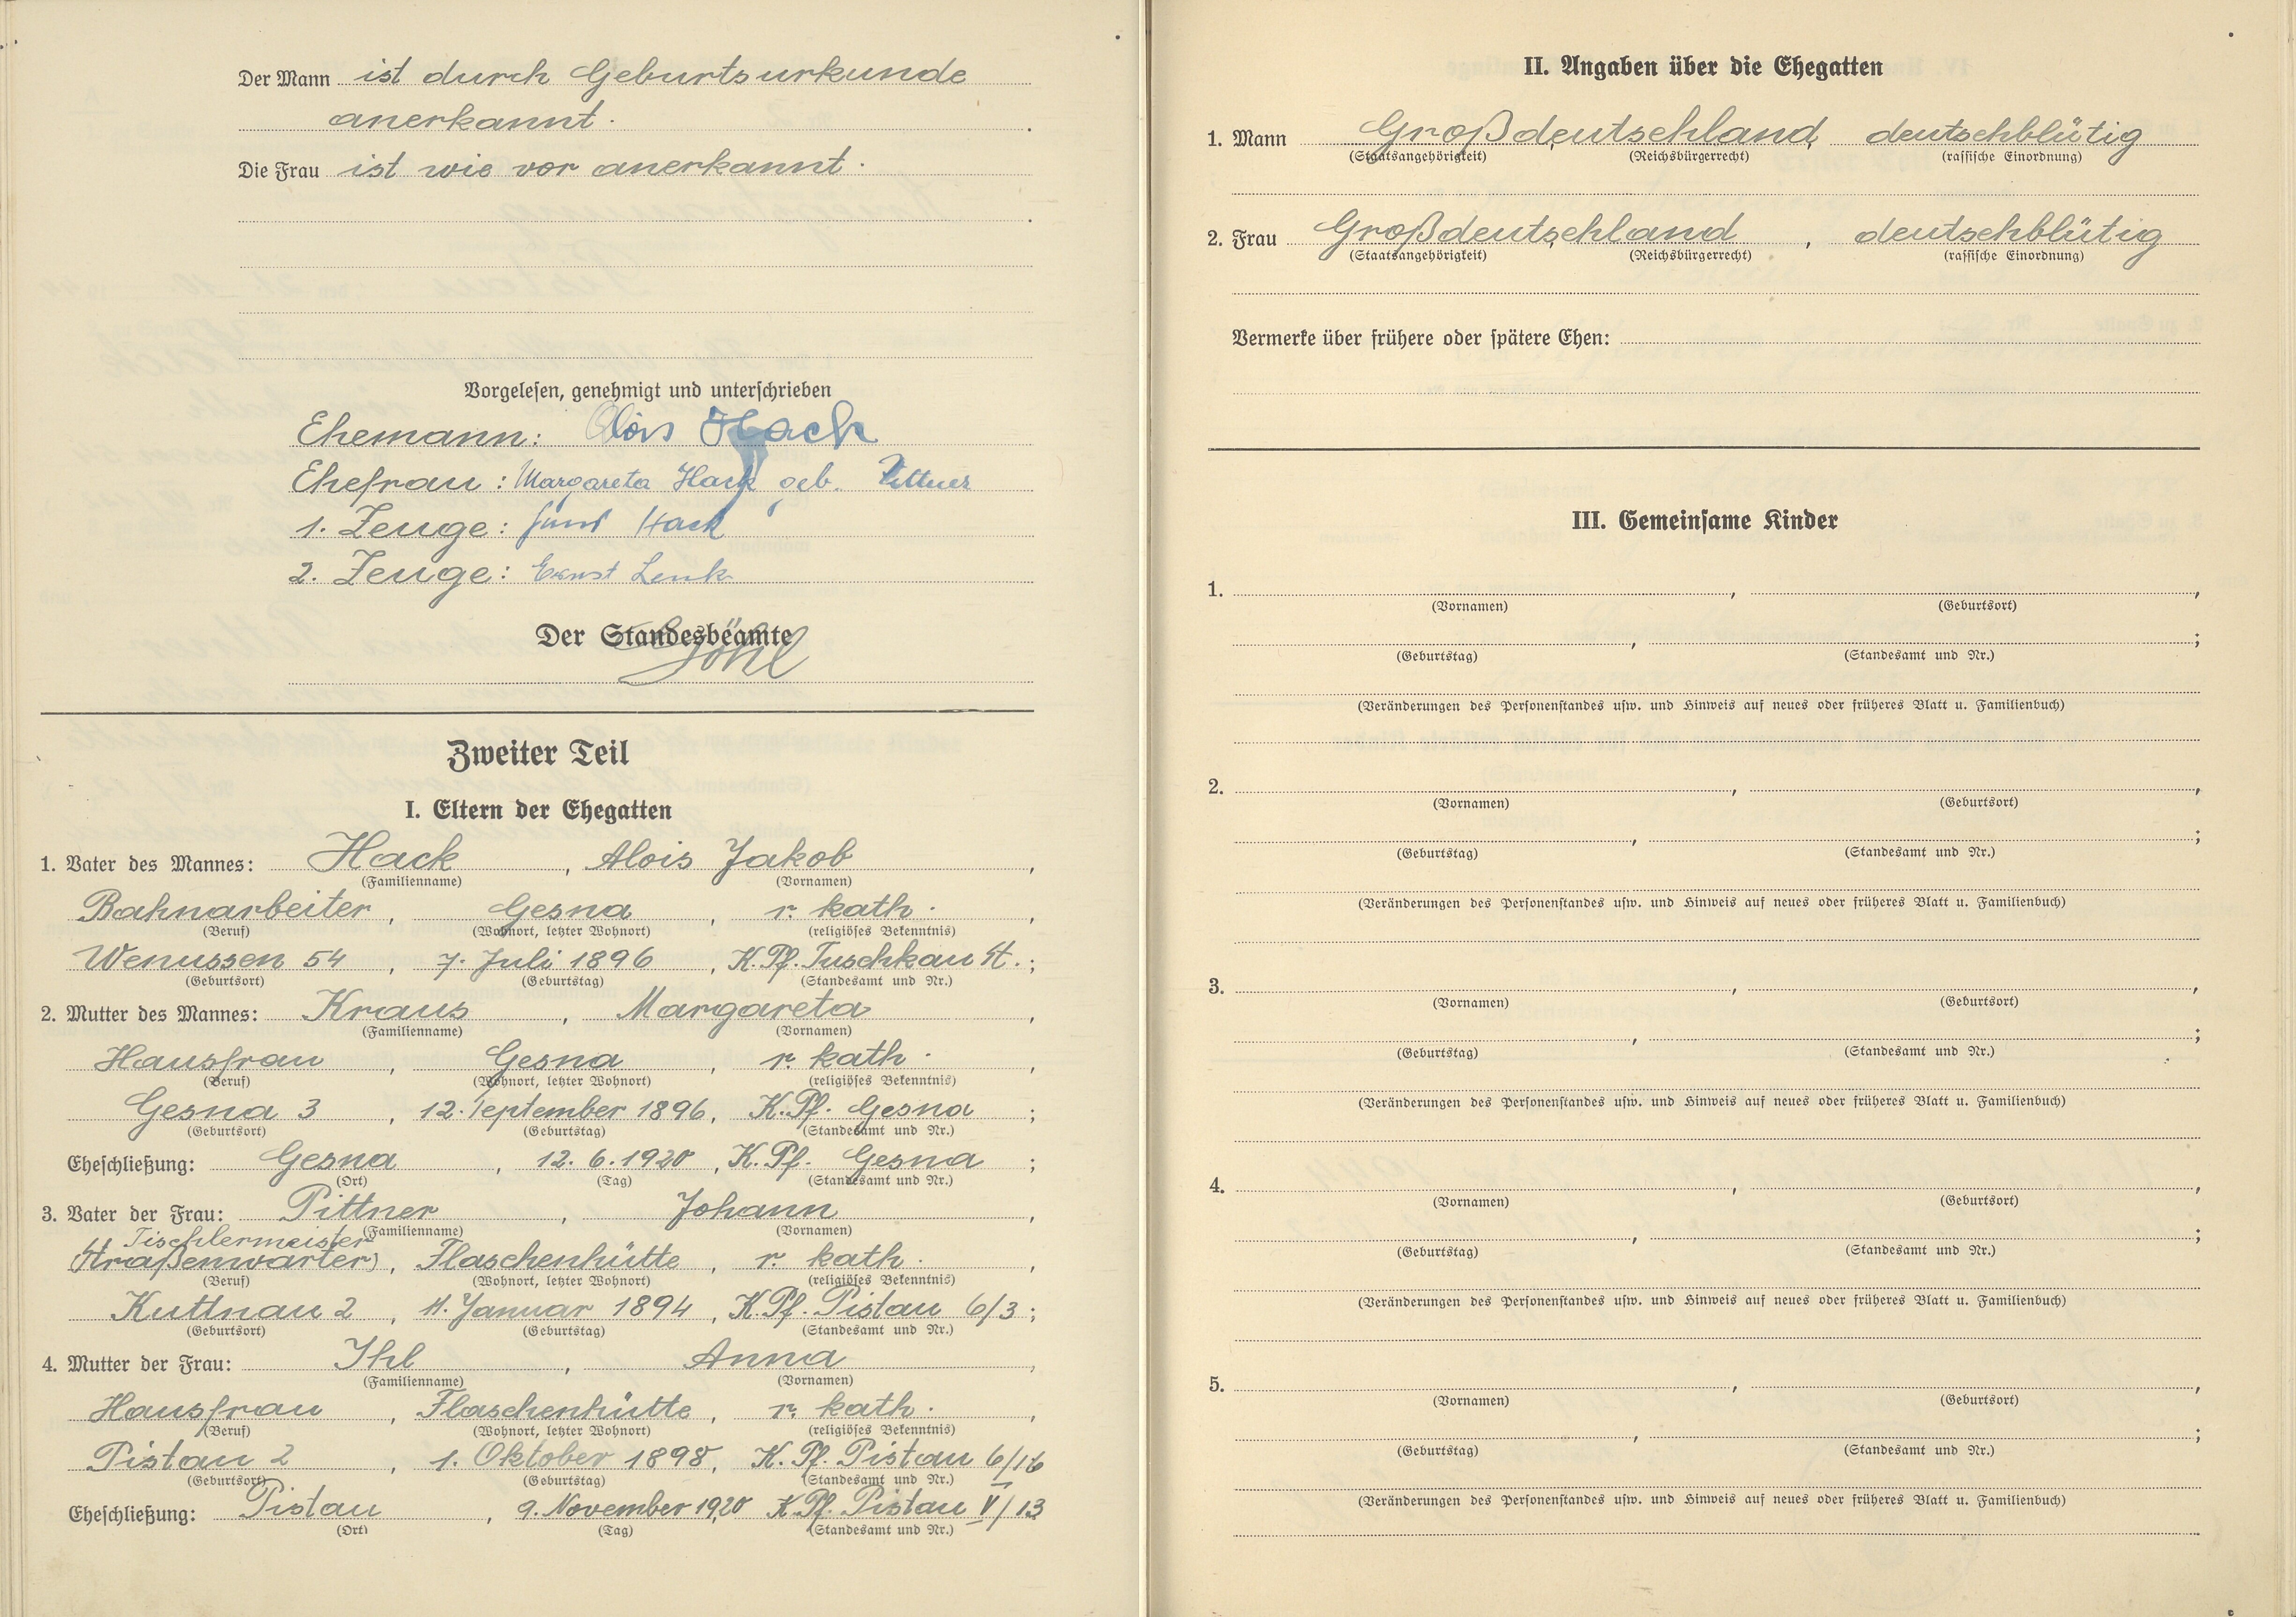 Der Mann ist durch Geburtsurkunde
anerkannt.
Die Frau ist wie vor anerkannt.
Vorgelesen, genehmigt und unterschrieben
Ehemann: Alois Hack
Ehefrau: Margareta Hack geb. Pittner
1. Zeuge: Hack
2. Zeuge: Ernst Lenk
Der Standesbeamte
Zweiter Teil
I. Eltern der Ehegatten
1. Vater des Mannes: Hack, Alois Jakob,
(Familienname) (Vornamen)
Bahnarbeiter, Gesna, r. kath.,
(Beruf) (Wohnort, letzter Wohnort) (religiöses Bekenntnis)
Wenussen 54, 7. Juli 1896, K. Pf. Tuschkau St.;
(Geburtsort) (Geburtstag) (Standesamt und Nr.)
2. Mutter des Mannes: Kraus, Margareta,
(Familienname) (Vornamen)
Hausfrau, Gesna, r. kath.,
(Beruf) (Wohnort, letzter Wohnort) (religiöses Bekenntnis)
Gesna 3, 12. September 1896, K. Pf. Gesna;
(Geburtsort) (Geburtstag) (Standesamt und Nr.)
Eheschließung: Gesna, 12. 6. 1920, K. Pf. Gesna;
(Ort) (Tag) (Standesamt und Nr.)
3. Vater der Frau: Pittner, Johann,
(Familienname) (Vornamen)
Tischlermeister
(Straßenwärter), Flaschenhütte, r. kath.,
(Beruf) (Wohnort, letzter Wohnort) (religiöses Bekenntnis)
Kuttnau 2, 11. Januar 1894, K. Pf. Pistau 6/3;
(Geburtsort) (Geburtstag) (Standesamt und Nr.)
4. Mutter der Frau: Ihl, Anna,
(Familienname) (Vornamen)
Hausfrau, Flaschenhütte, r. kath.,
(Beruf) (Wohnort, letzter Wohnort) (religiöses Bekenntnis)
Pistau 2, 1. Oktober 1898, K. Pf. Pistau 6/16
(Geburtsort) (Geburtstag) (Standesamt und Nr.)
Eheschließung: Pistau, 9. November 1920 K. Pf. Pistau V/13
(Ort) (Tag) (Standesamt und Nr.)
II. Angaben über die Ehegatten
1. Mann Großdeutschland, deutschblütig
(Staatsangehörigkeit) (Reichsbürgerrecht) (rassische Einordnung)
2. Frau Großdeutschland, deutschblütig
(Staatsangehörigkeit) (Reichsbürgerrecht) (rassische Einordnung)
Vermerke über frühere oder spätere Ehen:
III. Gemeinsame Kinder
1. , ,
(Vornamen) (Geburtsort)
, ;
(Geburtstag) (Standesamt und Nr.)
(Veränderungen des Personenstandes usw. und Hinweis auf neues oder früheres Blatt u. Familienbuch)
2. , ,
(Vornamen) (Geburtsort)
, ;
(Geburtstag) (Standesamt und Nr.)
(Veränderungen des Personenstandes usw. und Hinweis auf neues oder früheres Blatt u. Familienbuch)
3. , ,
(Vornamen) (Geburtsort)
, ;
(Geburtstag) (Standesamt und Nr.)
(Veränderungen des Personenstandes usw. und Hinweis auf neues oder früheres Blatt u. Familienbuch)
4. , ,
(Vornamen) (Geburtsort)
, ;
(Geburtstag) (Standesamt und Nr.)
(Veränderungen des Personenstandes usw. und Hinweis auf neues oder früheres Blatt u. Familienbuch)
5. , ,
(Vornamen) (Geburtsort)
, ;
(Geburtstag) (Standesamt und Nr.)
(Veränderungen des Personenstandes usw. und Hinweis auf neues oder früheres Blatt u. Familienbuch)